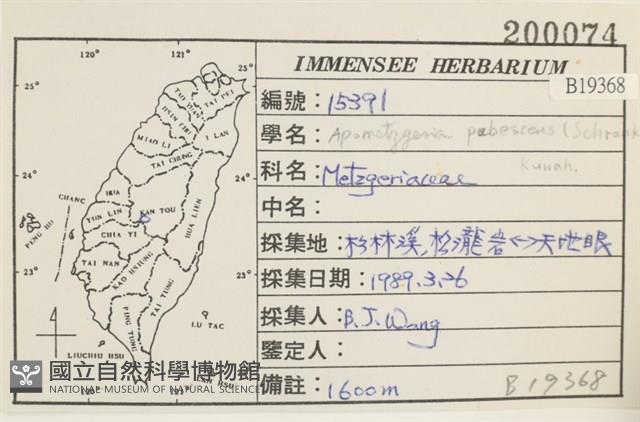 200074
IMMENSEE HERBARIUM
B19368
編號：15391
學名：Apometzgeria pubescens (Schrank) Kuwah.
科名：Metzgeriaceae
中名：
採集地：杉林溪，松瀧岩<->天地眼
採集日期：1989.3.26
採集人：B.J. Wang
鑒定人：
備註：1600m
B19368
120°
121°
25°
25°
24°
24°
23°
23°
TAI PEI
I LAN
MIAO LI
TAI CHUNG
CHANG HUA
NAN TOU
YUN LIN
CHIA YI
HUA LIEN
PENG HU
TAI NAN
KAO HSIUNG
TAI TUNG
PING TUNG
LU TAO
LIUCHIU HSU
LAN HSU
120°
121°
國立自然科學博物館
NATIONAL MUSEUM OF NATURAL SCIENCE